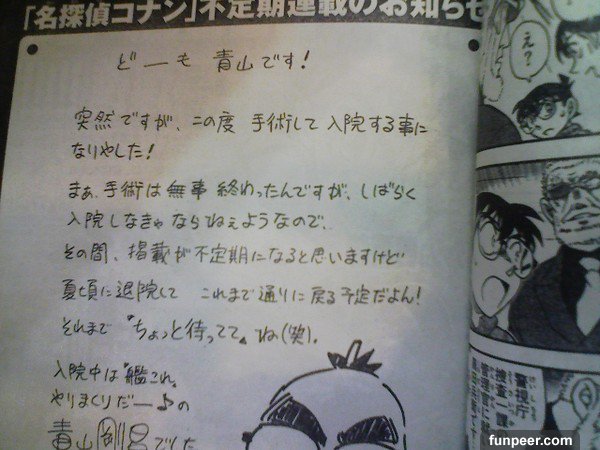 「名探偵コナン」不定期連載のお知らせ
どーも 青山です!
突然ですが、この度 手術して 入院する事に
なりやした!
まぁ、手術は無事 終わったんですが、しばらく
入院しなきゃならねぇようなので、
その間、掲載が不定期になると思いますけど
夏頃に退院して これまで通りに戻る予定だよん!
それまで『ちょっと待ってて』ね(笑)。
入院中は『艦これ』
やりまくりだー♪の
青山剛昌でした
え?
警視庁
捜査一課
管理官
funpeer.com